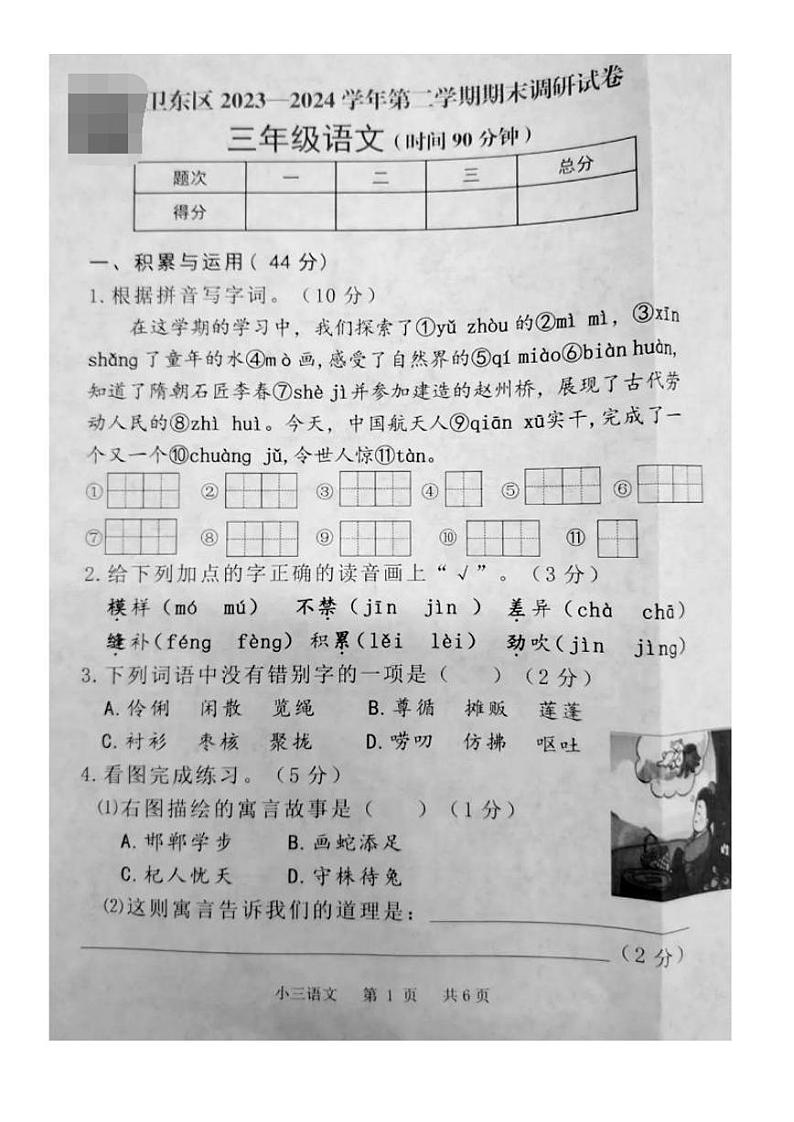 卫东区 2023—2024 学年第二学期期末调研试卷
三年级语文(时间 90 分钟)
题次 一 二 三 总分
得分
一、积累与运用( 44 分)
1.根据拼音写字词。(10 分)
在这学期的学习中，我们探索了①yǔ zhòu 的②mì mì，③xīn
shǎng 了童年的水④mò画,感受了自然界的⑤qí miào⑥biàn huàn,
知道了隋朝石匠李春⑦shè jì并参加建造的赵州桥，展现了古代劳
动人民的⑧zhì huì。今天，中国航天人⑨qiān xū实干,完成了一
个又一个⑩chuàng jǔ,令世人惊⑪tàn。
① ② ③ ④ ⑤ ⑥
⑦ ⑧ ⑨ ⑩ ⑪
2.给下列加点的字正确的读音画上“√”。(3 分)
模样(mó mú) 不禁(jīn jìn ) 差异(chà chā)
缝补(féng fèng) 积累(lěi lèi) 劲吹(jìn jìng)
3.下列词语中没有错别字的一项是( )(2 分)
A.伶俐 闲散 览绳 B.尊循 摊贩 莲蓬
C.衬衫 枣核 聚拢 D.唠叨 仿拂 呕吐
4.看图完成练习。(5 分)
⑴右图描绘的寓言故事是( )(1 分)
A.邯郸学步 B.画蛇添足
C.杞人忧天 D.守株待兔
⑵这则寓言告诉我们的道理是:
(2 分)
小三语文 第 1 页 共 6 页